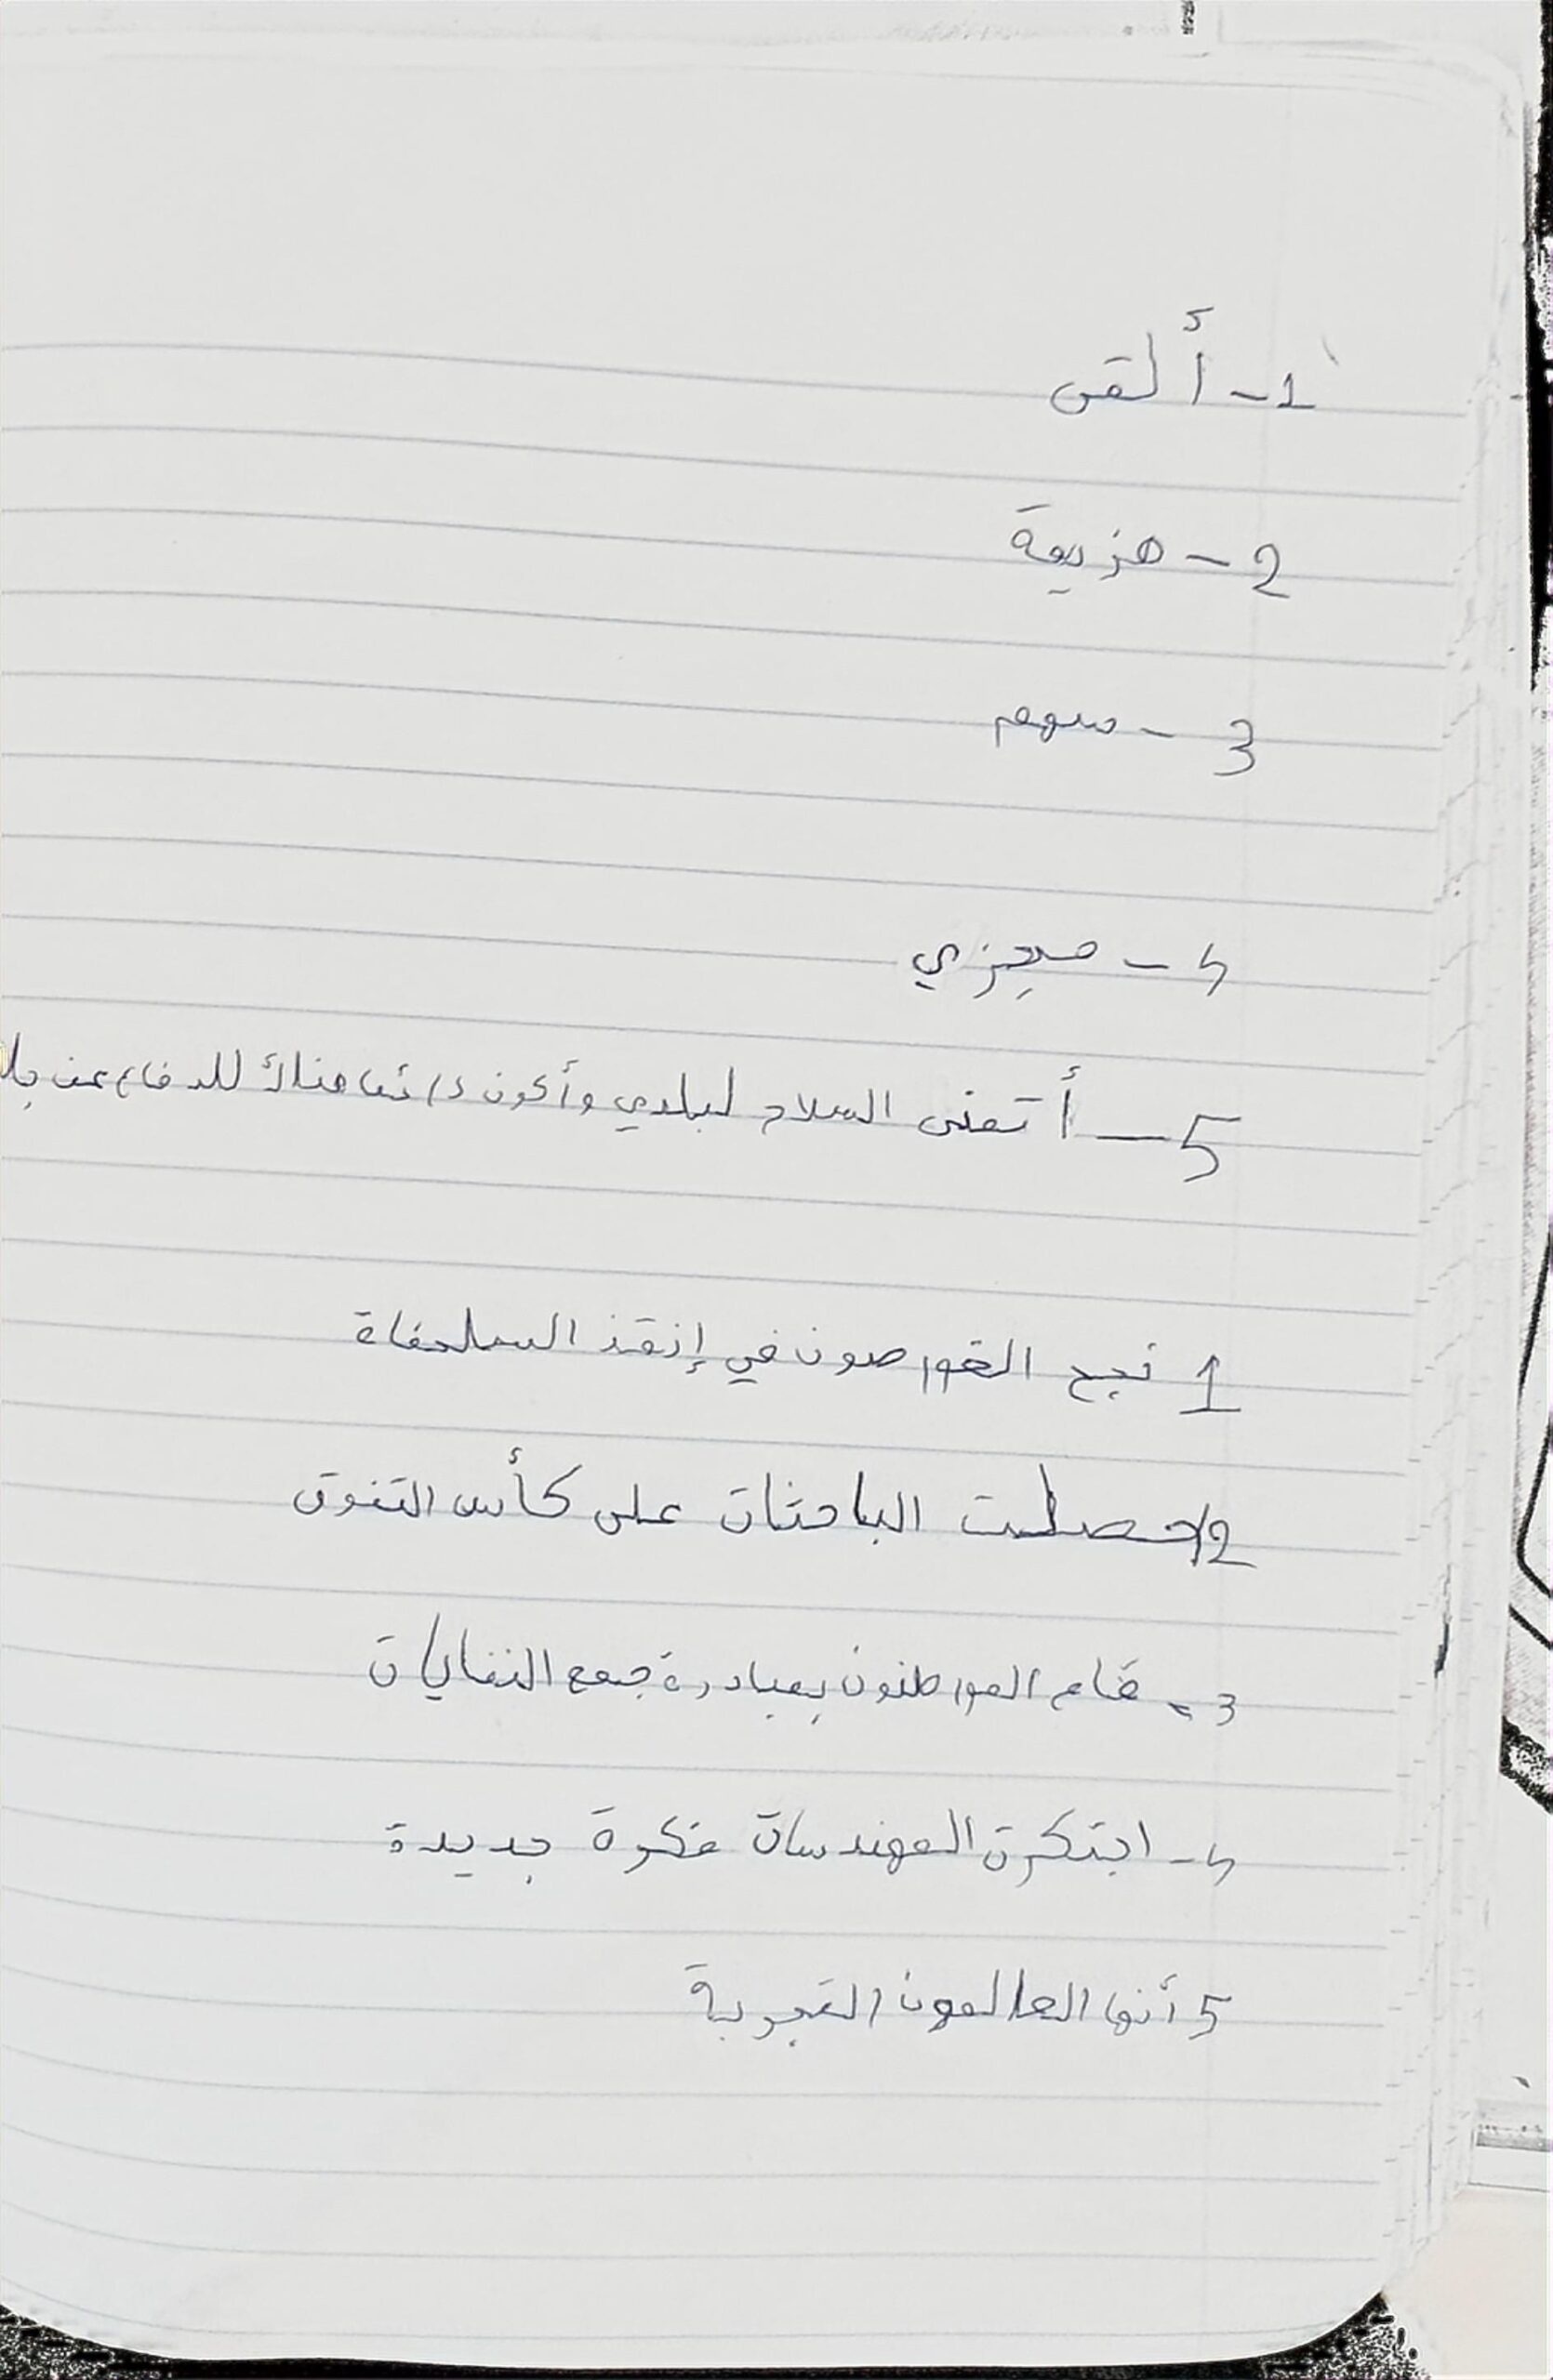 1- ألقى
2- هزيمة
3- سهم
4- مجزي
5- أتمنى السلام لبلدي وأكون دائما هناك للدفاع عن
1 نجح الغواصون في إنقذ السلحفاة
2/ حصلت الباحثات على كأس التفوق
3- قام المواطنون بمبادرة جمع النفايات
4- ابتكرت المهندسات فكرة جديدة
5 أنها العالمون التجربة